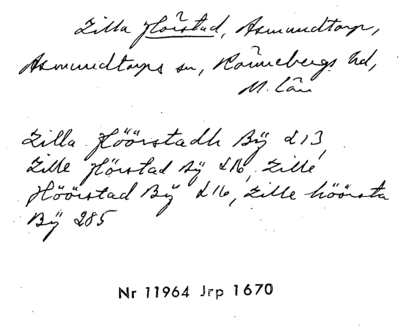 Zilla Hörstad, Asmundtorp,
Asmundtorps sn, Rönnebergs hd,
M. län
Zilla Höörstadh Bÿ d 13,
Zille Hörstad Bÿ d 16, Zille
Höörstad Bÿ d 16, Zille höörsta
Bÿ 285
Nr 11964 Jrp 1670